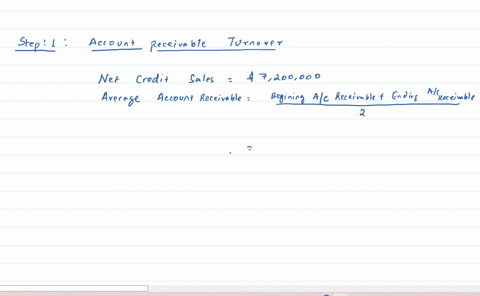 Step: 1 : Account Receivable Turnover
Net Credit Sales = $ 7,200,000
Average Account Receivable = Begining A/c Receivable + Ending A/c Receivable
2
=